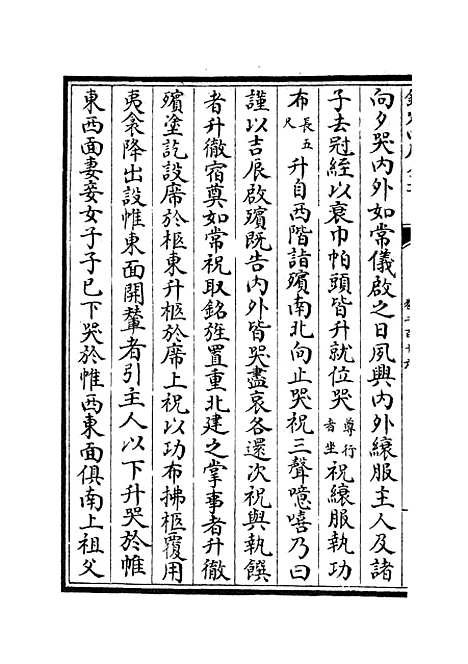 向夕哭内外如常儀啟之日夙興内外縗服主人及諸
子去冠絰以衰巾帕頭皆升就位哭尊行者坐祝縗服執功
布長五尺升自西階詣殯南北向止哭祝三聲噫嘻乃曰
謹以吉辰啟殯既告内外皆哭盡哀各還次祝與執饌
者升徹宿奠如常祝取銘旌置重北建之掌事者升徹
殯塗訖設席於柩東升柩於席上祝以功布拂柩覆用
夷衾降出設帷東面開輦者引主人以下升哭於帷
東西面妻妾女子子已下哭於帷西東面俱南上祖父